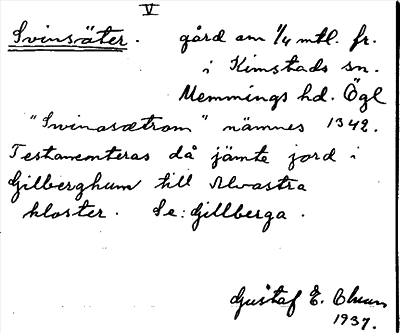 V
Svinsäter. gård om 1/4 mtl. fr.
i Kimstads sn.
Memmings hd. Ögl
"Swinasætrom" nämnes 1342.
Testamenteras då jämte jord i
Gilberghum till Alvastra
kloster. Se: Gillberga.
Gustaf E. Olsson
1937.